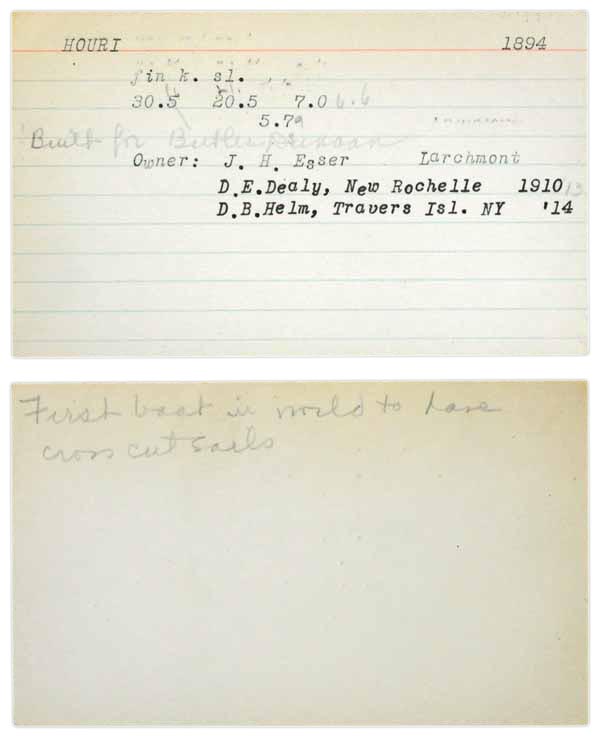 HOURI 1894
fin k. sl.
30.5 20.5 7.0 6.6
5.79
Built for Butler Duncan
Owner: J. H. Esser Larchmont
D.E.Dealy, New Rochelle 1910 13
D.B.Helm, Travers Isl. NY '14
First boat in world to have
cross cut sails